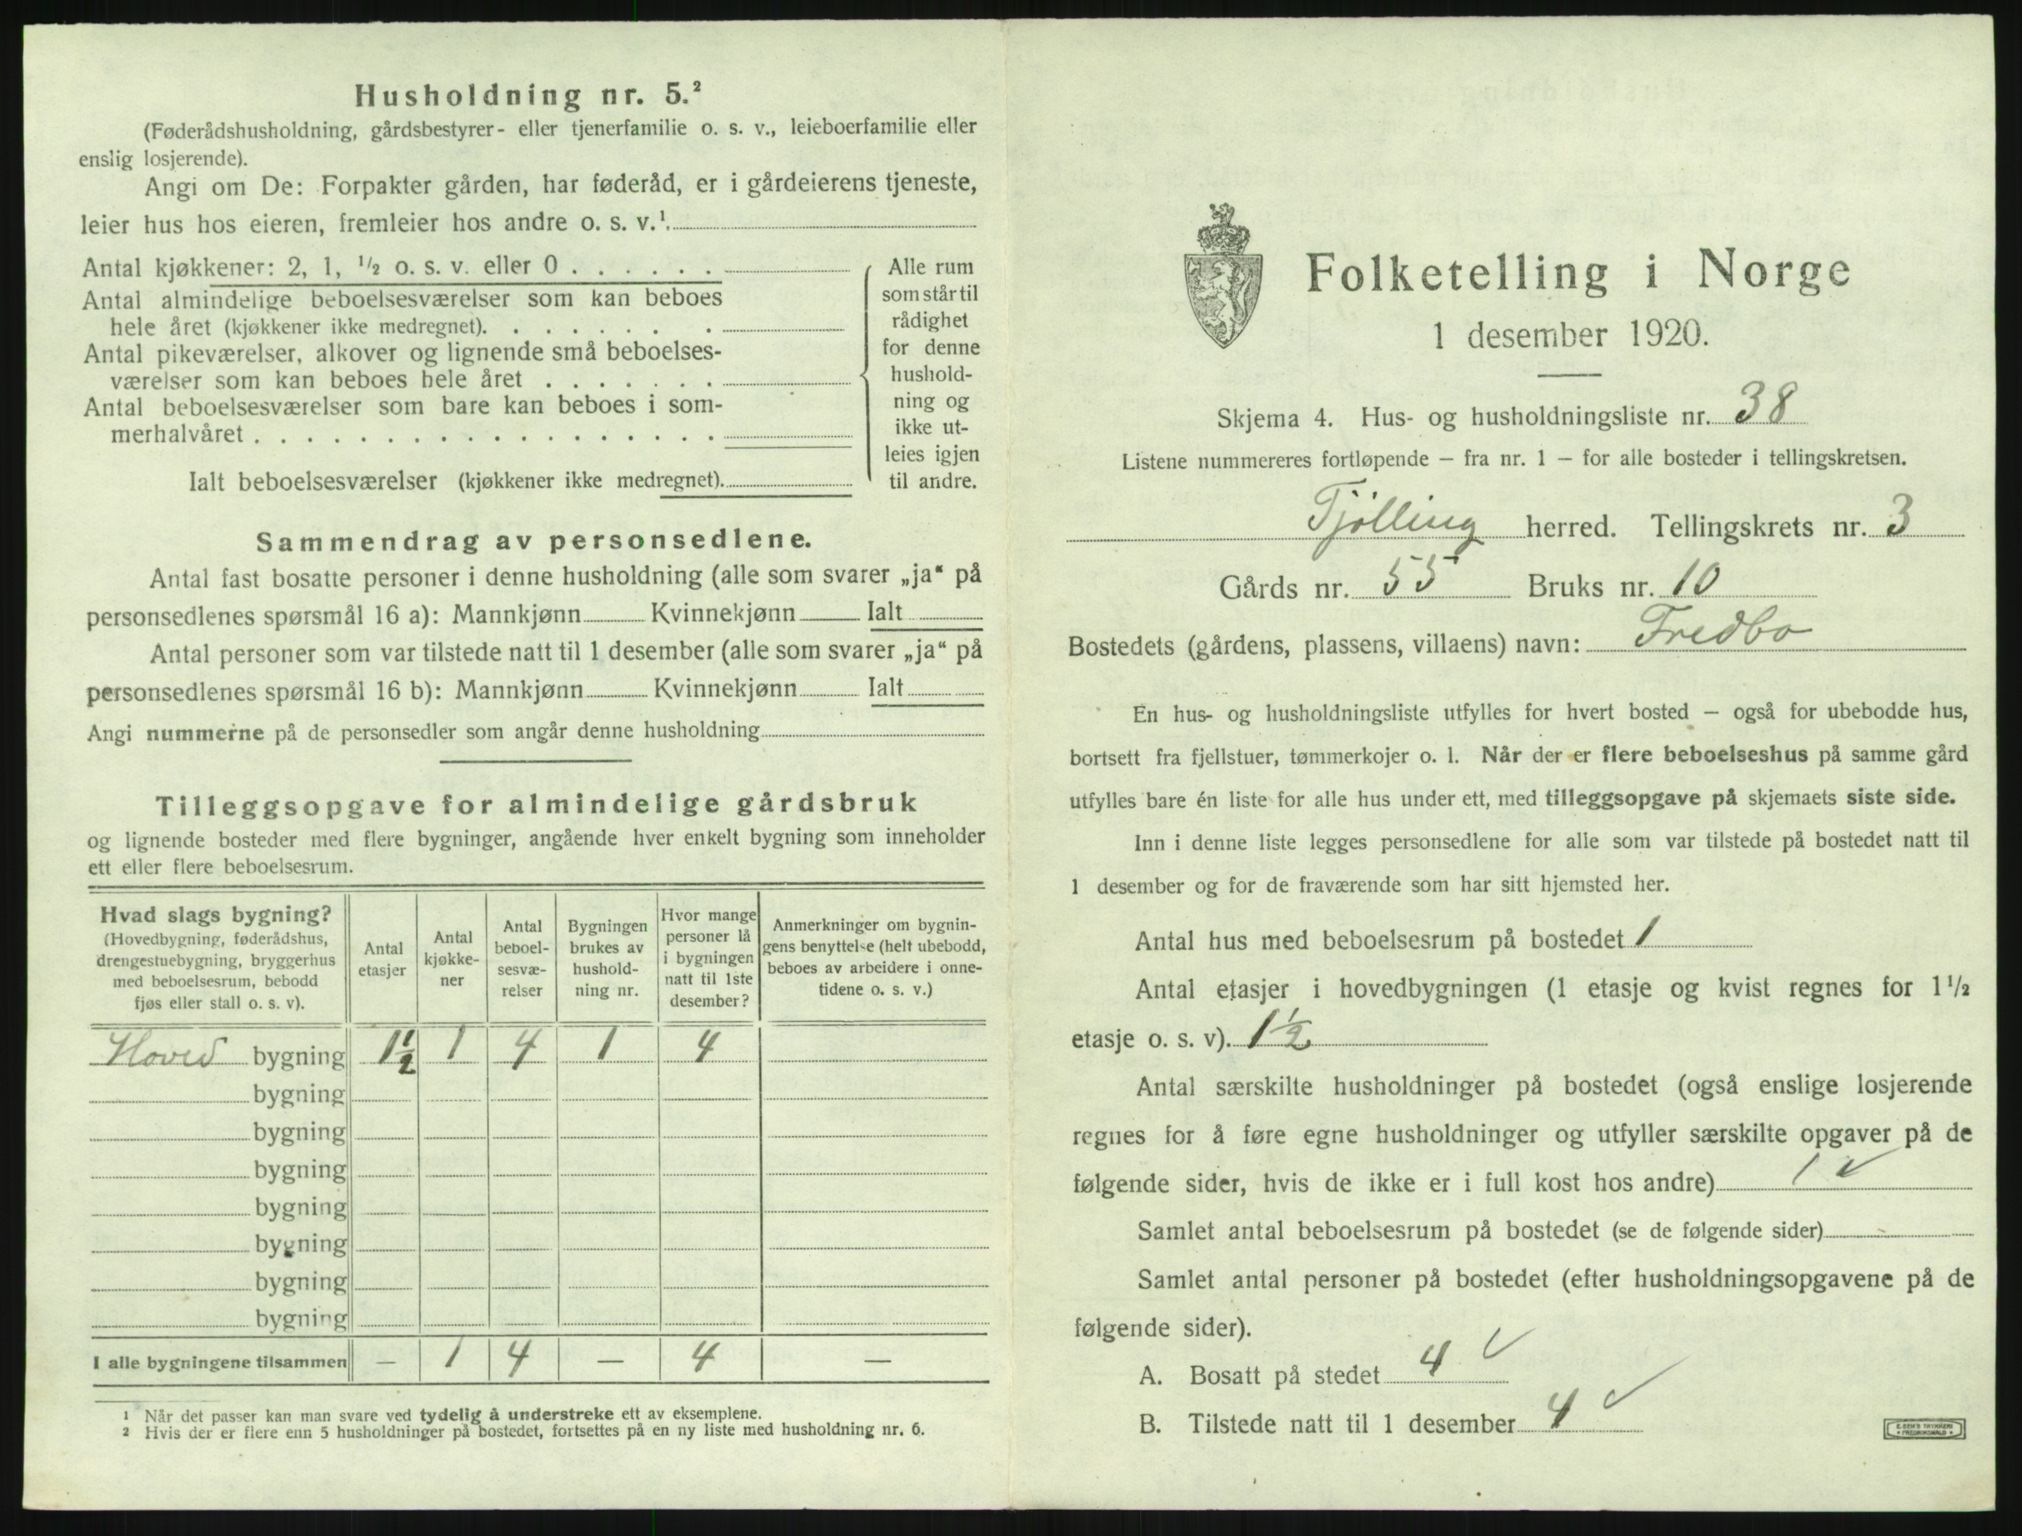 Husholdning nr. 5.²
(Føderådshusholdning, gårdsbestyrer- eller tjenerfamilie o. s. v., leieboerfamilie eller
enslig losjerende).
Angi om De: Forpakter gården, har føderåd, er i gårdeierens tjeneste,
leier hus hos eieren, fremleier hos andre o. s. v.¹.
Antal kjøkkener: 2, 1, ½ o. s. v. eller 0 . . . . . .
Antal almindelige beboelsesværelser som kan beboes
hele året (kjøkkener ikke medregnet). . . . . . . .
Antal pikeværelser, alkover og lignende små beboelses-
værelser som kan beboes hele året . . . . . . .
Antal beboelsesværelser som bare kan beboes i som-
merhalvåret . . . . . . . . . . . . . . . . . .
Ialt beboelsesværelser (kjøkkener ikke medregnet).
Alle rum
som står til
rådighet
for denne
hushold-
ning og
ikke ut-
leies igjen
til andre.
Sammendrag av personsedlene.
Antal fast bosatte personer i denne husholdning (alle som svarer „ja“ på
personsedlenes spørsmål 16 a): Mannkjønn Kvinnekjønn Ialt
Antal personer som var tilstede natt til 1 desember (alle som svarer „ja“ på
personsedlenes spørsmål 16 b): Mannkjønn Kvinnekjønn Ialt
Angi nummerne på de personsedler som angår denne husholdning
Tilleggsopgave for almindelige gårdsbruk
og lignende bosteder med flere bygninger, angående hver enkelt bygning som inneholder
ett eller flere beboelsesrum.
Hvad slags bygning?
(Hovedbygning, føderådshus,
drengestuebygning, bryggerhus
med beboelsesrum, bebodd
fjøs eller stall o. s. v).
Antal
etasjer
Antal
kjøkke-
ner
Antal
beboel-
sesvæ-
relser
Bygningen
brukes av
hushold-
ning nr.
Hvor mange
personer lå
i bygningen
natt til 1ste
desember?
Anmerkninger om bygnin-
gens benyttelse (helt ubebodd,
beboes av arbeidere i onne-
tidene o. s. v.)
Hoved bygning 1½ 1 4 1 4
bygning
bygning
bygning
bygning
bygning
bygning
bygning
I alle bygningene tilsammen — 1 4 — 4 —
¹ Når det passer kan man svare ved tydelig å understreke ett av eksemplene.
² Hvis der er flere enn 5 husholdninger på bostedet, fortsettes på en ny liste med husholdning nr. 6.
Folketelling i Norge
1 desember 1920.
Skjema 4. Hus- og husholdningsliste nr. 38
Listene nummereres fortløpende – fra nr. 1 – for alle bosteder i tellingskretsen.
Tjølling herred. Tellingskrets nr. 3
Gårds nr. 55 Bruks nr. 10
Bostedets (gårdens, plassens, villaens) navn: Fredbo
En hus- og husholdningsliste utfylles for hvert bosted – også for ubebodde hus,
bortsett fra fjellstuer, tømmerkojer o. l. Når der er flere beboelseshus på samme gård
utfylles bare én liste for alle hus under ett, med tilleggsopgave på skjemaets siste side.
Inn i denne liste legges personsedlene for alle som var tilstede på bostedet natt til
1 desember og for de fraværende som har sitt hjemsted her.
Antal hus med beboelsesrum på bostedet 1
Antal etasjer i hovedbygningen (1 etasje og kvist regnes for 1½
etasje o. s. v). 1½
Antal særskilte husholdninger på bostedet (også enslige losjerende
regnes for å føre egne husholdninger og utfyller særskilte opgaver på de
følgende sider, hvis de ikke er i full kost hos andre) 1 ✓
Samlet antal beboelsesrum på bostedet (se de følgende sider)
Samlet antal personer på bostedet (efter husholdningsopgavene på de
følgende sider).
A. Bosatt på stedet 4 ✓
B. Tilstede natt til 1 desember 4 ✓